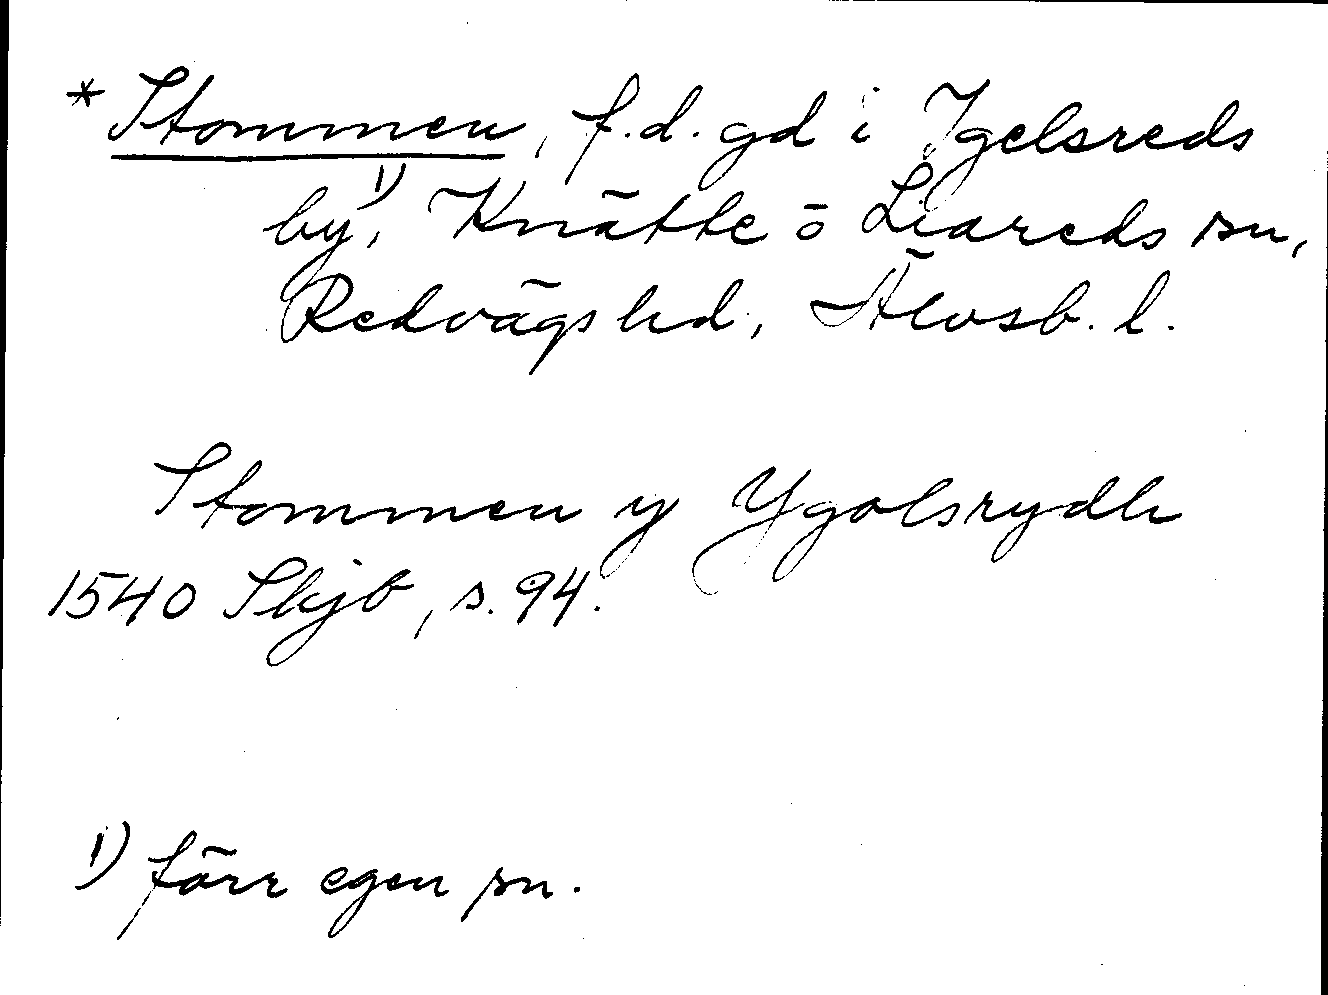 *Stommen, f.d. gd i Igelsreds
by,¹⁾ Knätte o Liareds sn,
Redvägs hd, Älvsb. l.
Stommen y Ygolsrydh
1540 Skjb, s. 94.
1) förr egen sn.